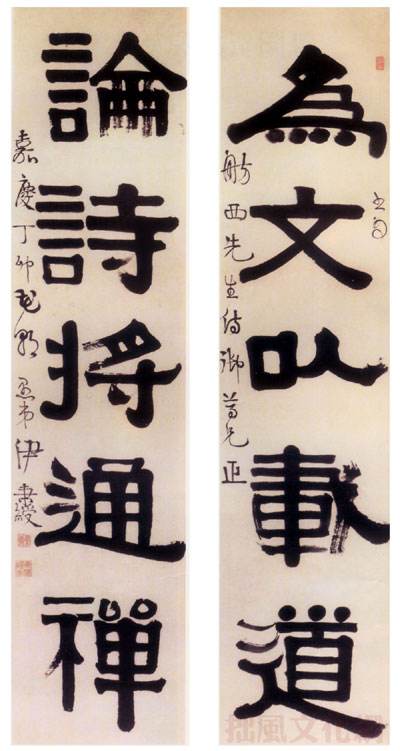 為文以載道
舫西先生侍御尊兄正
論詩將通禪
嘉慶丁卯花朝愚弟伊秉綬
拙風文化網